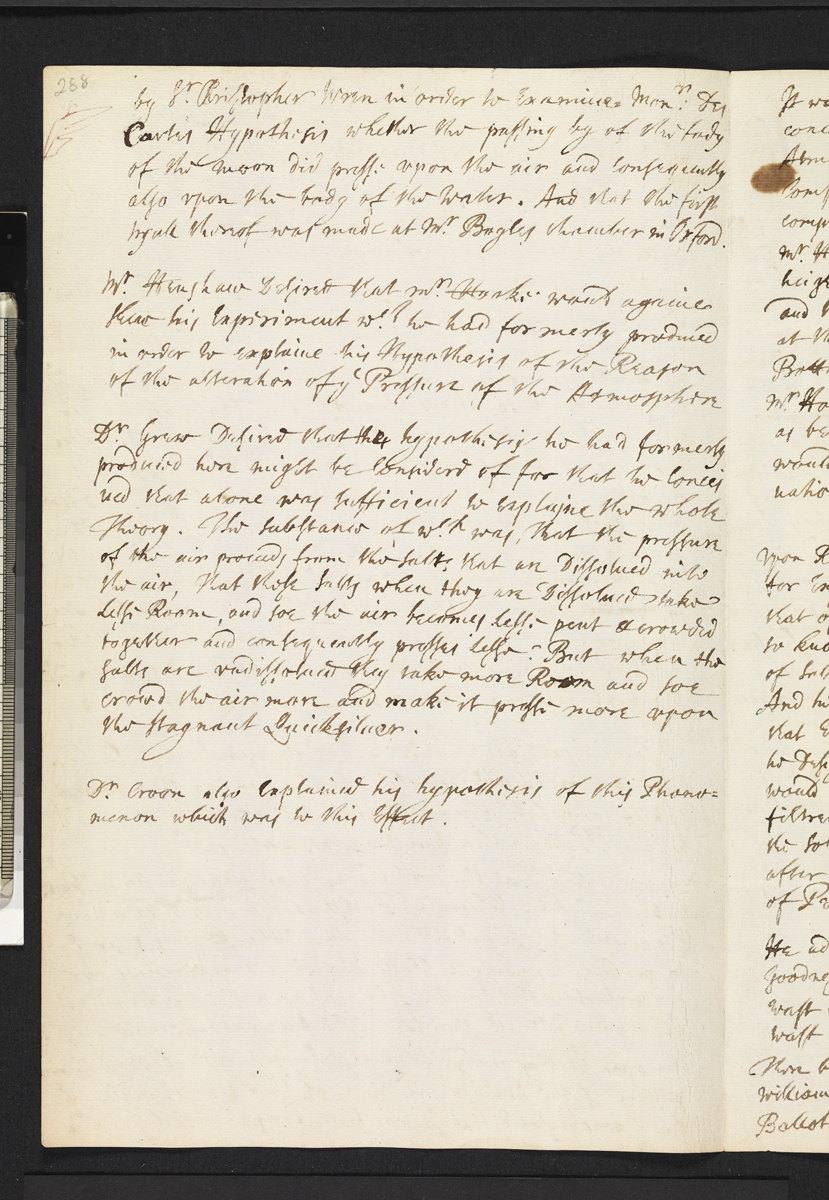 288
by Sr. Christopher Wren in order to Examine Monr. Des
Cartes Hypothesis whether the passing by of the body
of the moon did presse upon the air and consequently
also vpon the body of the Water. And that the first
tryall thereof was made at Mr Boyles chamber in Oxford.
Mr. Henshaw Desired that Mr. Hooke would againe
shew his Experiment wch. he had formerly produced
in order to explaine his Hypothesis of the Reason
of the alteration of ye Pressure of the Atmosphere
Dr. Grew Desired that the hypothesis he had formerly
produced here might be Considerd of for that he Concei
ued that alone was sufficient to explaine the whole
Theory. The substance of wch. was, that the pressure
of the air proceeds from the salts that are Dissolued into
the air, that those salts when they are Dissolued take
Lesse Room, and soe the air becomes lesse pent & crowded
together and consequently presses lesse: But when the
salts are vndissolued they take more Room and soe
crowd the air more and make it presse more vpon
the stagnant Quicksiluer.
Dr. Croon also Explained his hypothesis of this Phœno=
menon which was to this Effect.
It wa
conc
Comp
comp
Mr. H
heig
and t
at th
Bott
Mr. Ho
as be
would
natio
vpon R
for En
that o
so kno
of Sal
And hi
that E
he Desi
would
filtre
the So
after
of P
He ad
Goodnes
wast
wast
There b
william
Ballot